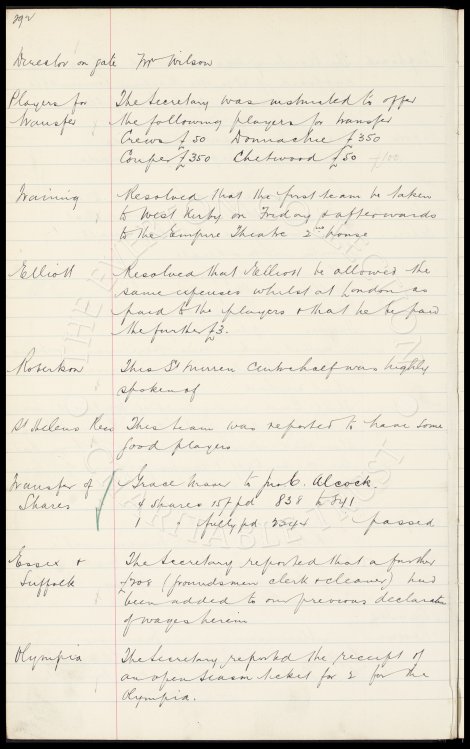 292
Director on gate Mr Wilson
Players for The Secretary was instructed to offer
transfer the following players for transfer
Crews £50 Donnachie £350
Couper £350 Chetwood £50 £100
Training Resolved that the first team be taken
to West Kirby on Friday & afterwards
to the Empire Theatre 2nd house
Elliott Resolved that Elliott be allowed the
same expenses whilst at London as
paid to the players & that he be paid
the further £3.
Robertson This St Mirren Centrehalf was highly
spoken of
St Helens Recs This team was reported to have some
good players
Transfer of Grace to Jno C. Alcock
Shares 4 shares 15/- pd 838 to 841
1 " fully pd 2342 passed
Essex & The Secretary reported that a further
Suffolk £208 (groundsmen clerk & cleaner) had
been added to our previous declaration
of wages herein
Olympia The Secretary reported the receipt of
an open season ticket for 2 for the
Olympia.